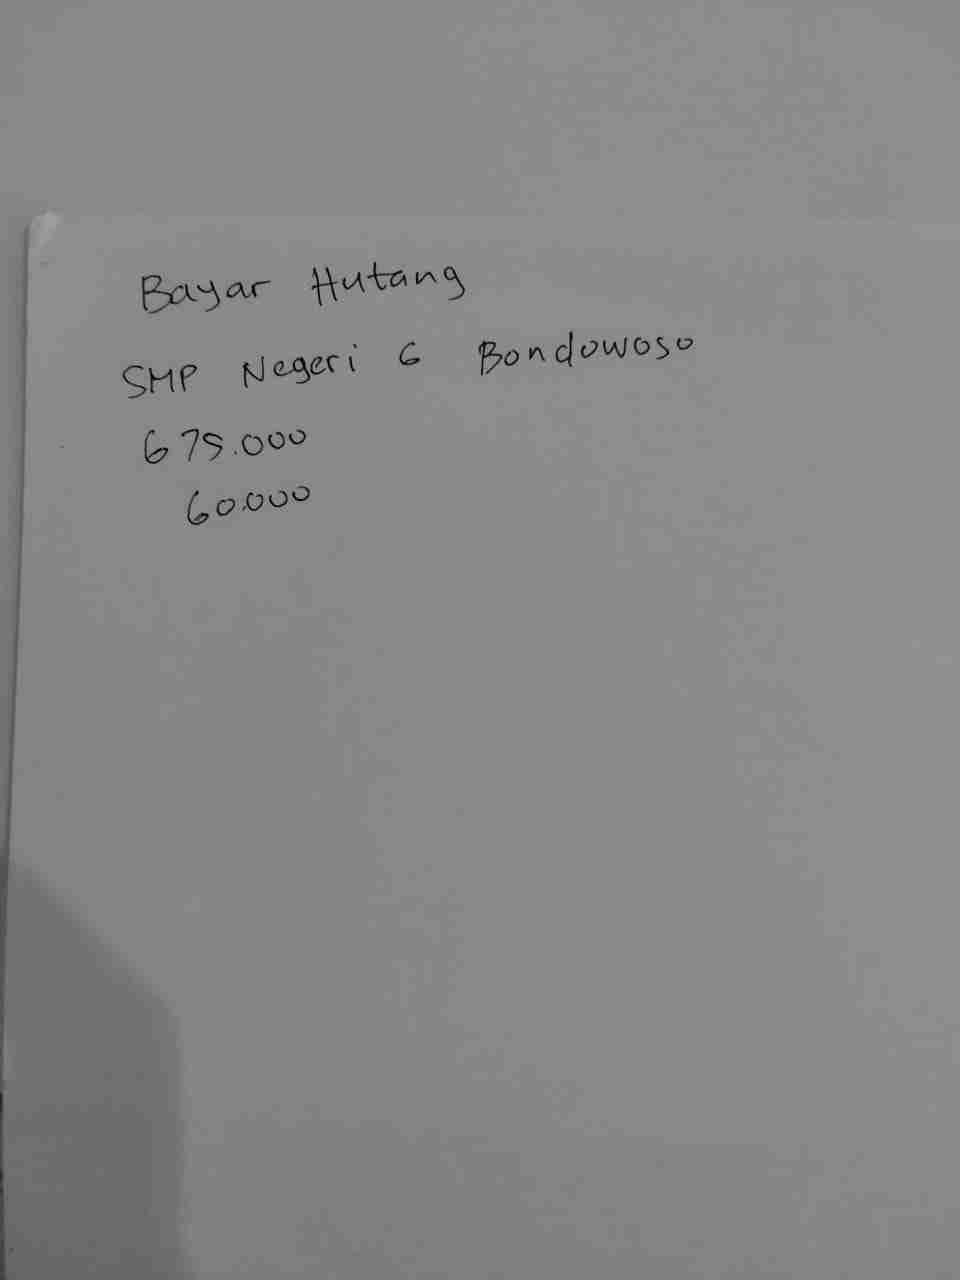 Bayar Hutang
SMP Negeri 6 Bondowoso
675.000
60.000